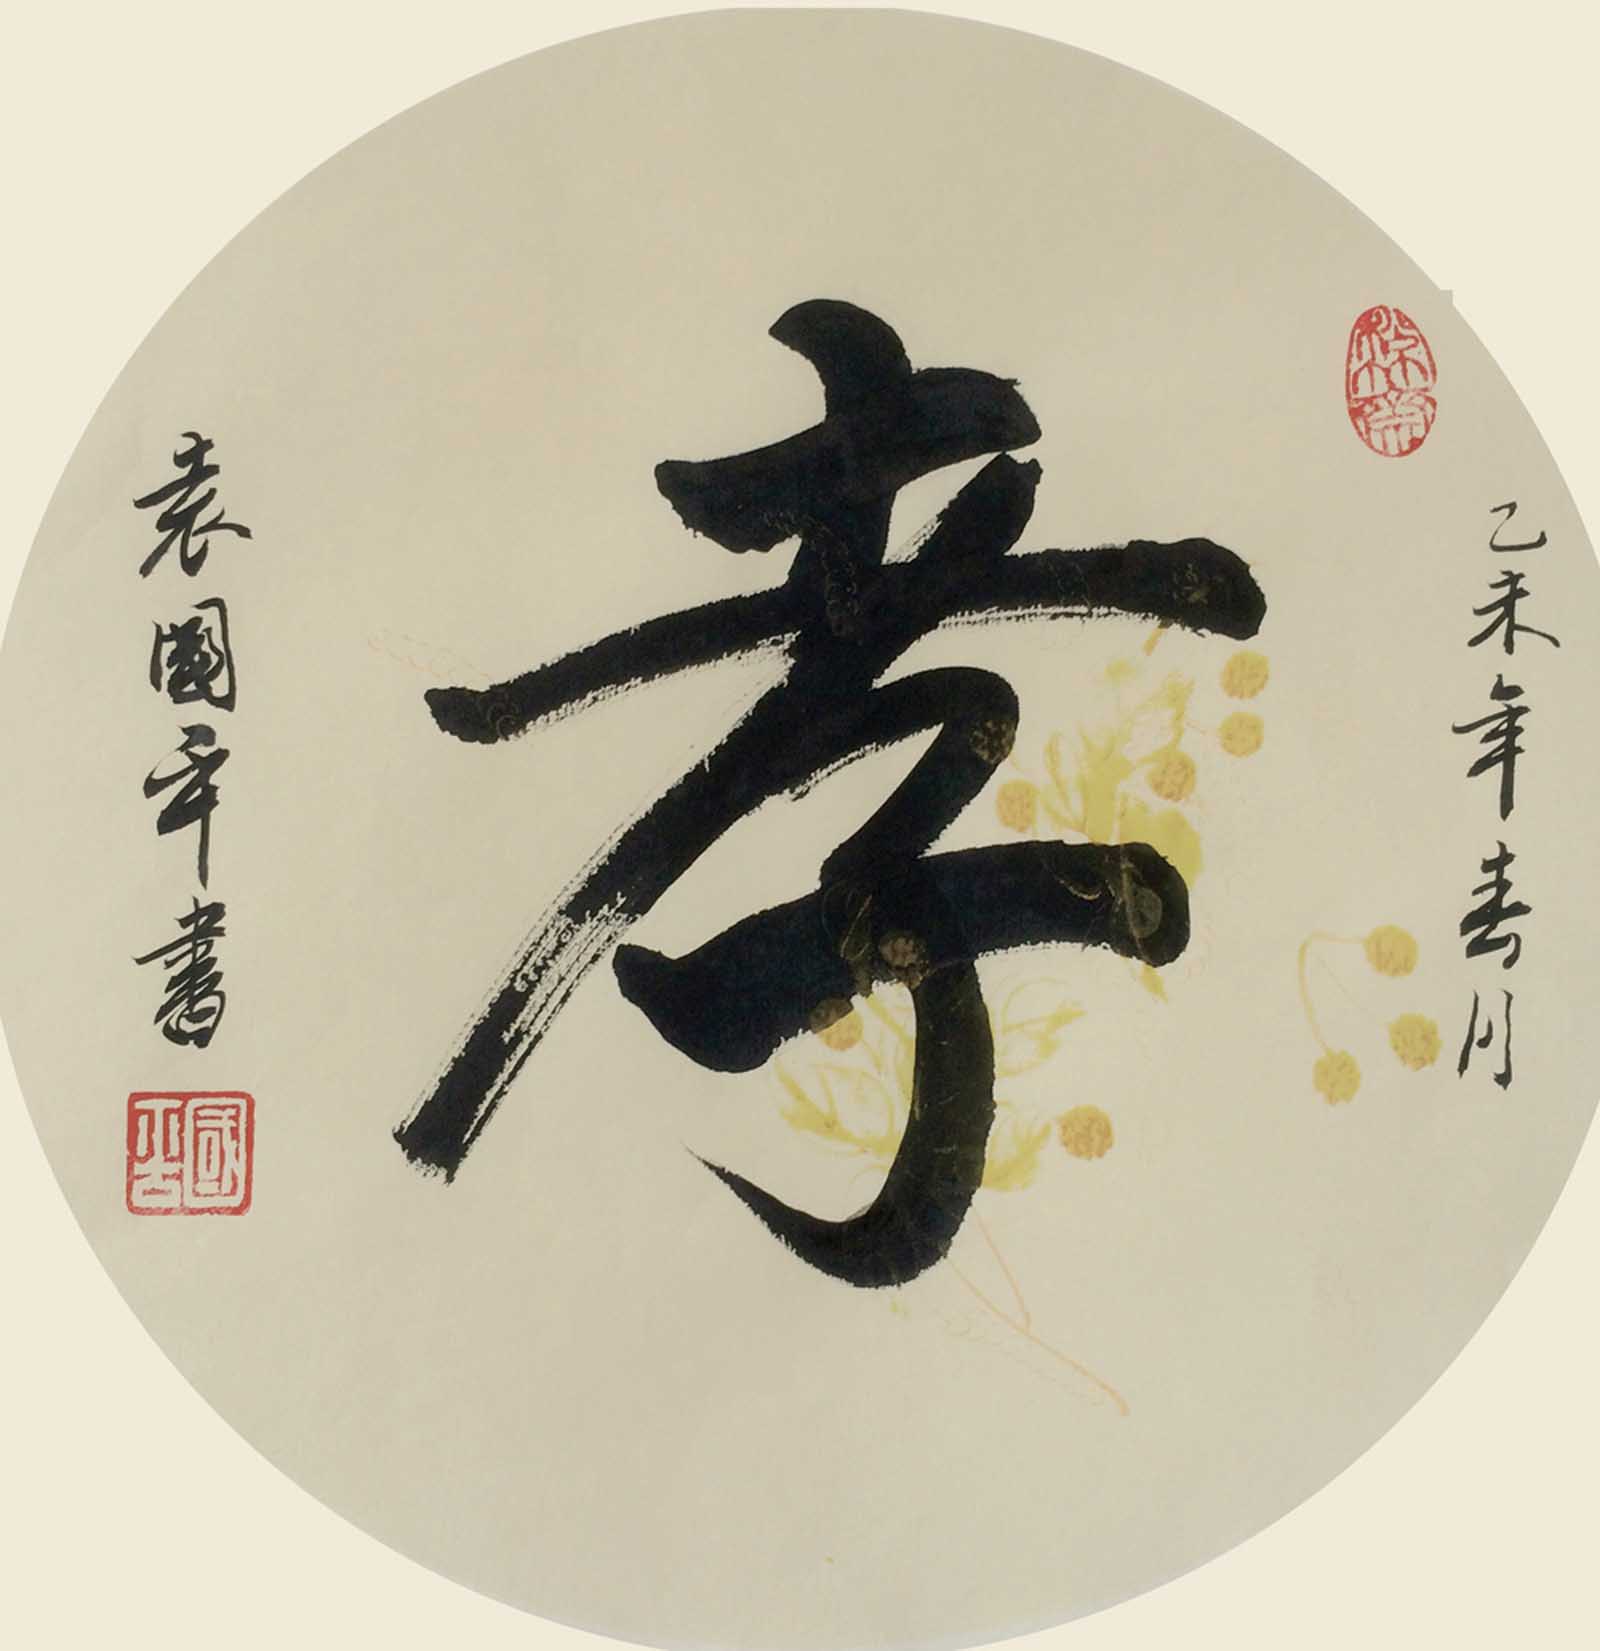 乙未年春月
孝
袁國平書
國平